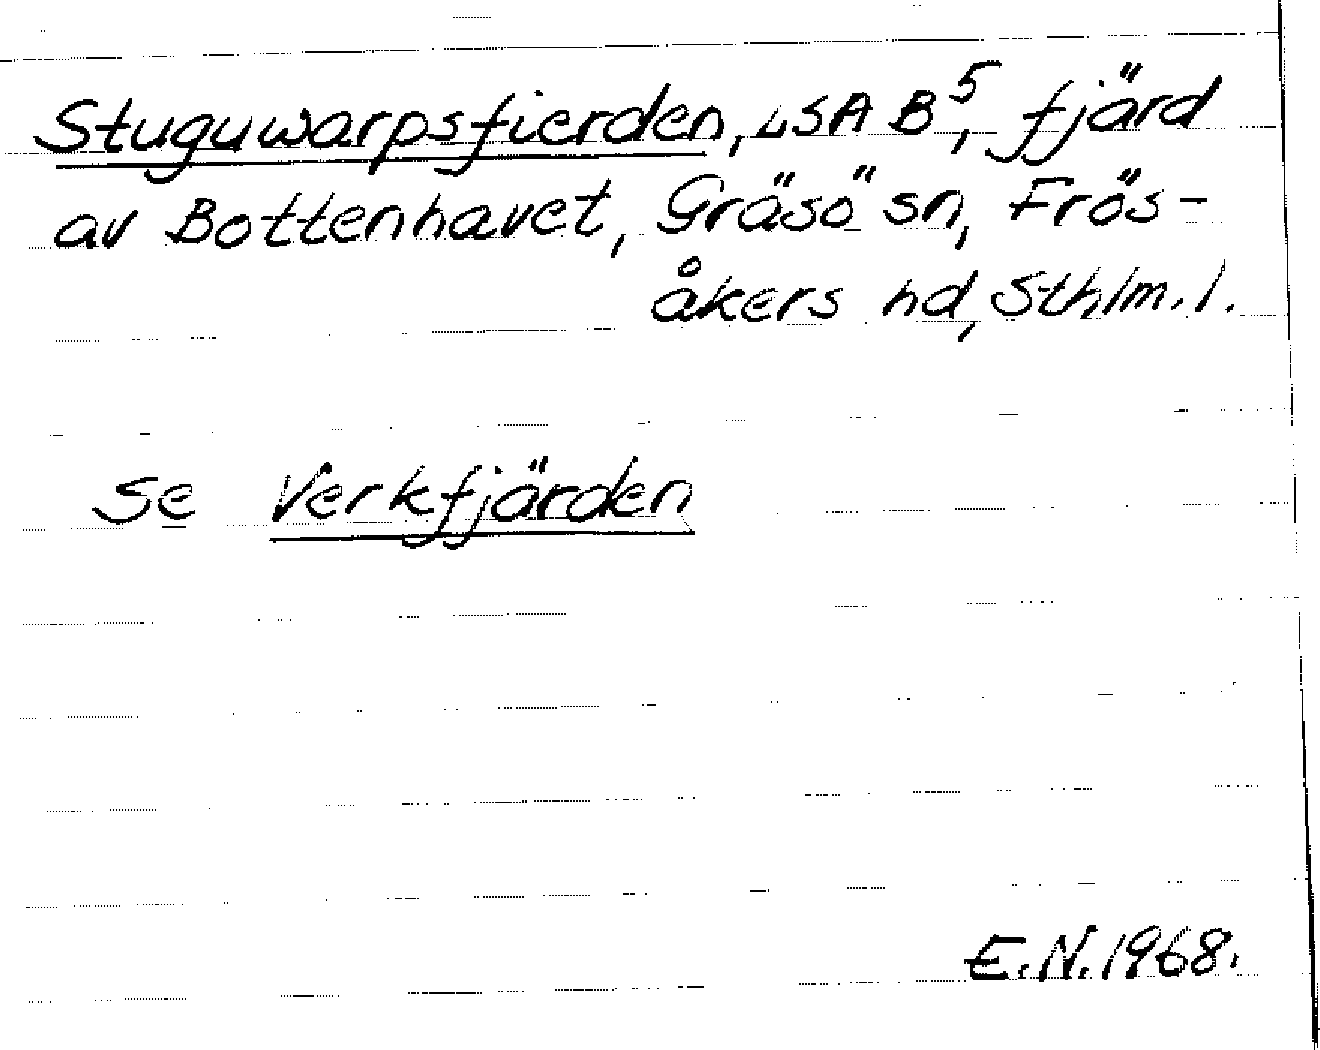 Stuguwarpsfierden, LSA B⁵, fjärd
av Bottenhavet, Gräsö sn, Frös-
åkers hd, Sthlm. l.
se Verkfjärden
E.N. 1968.